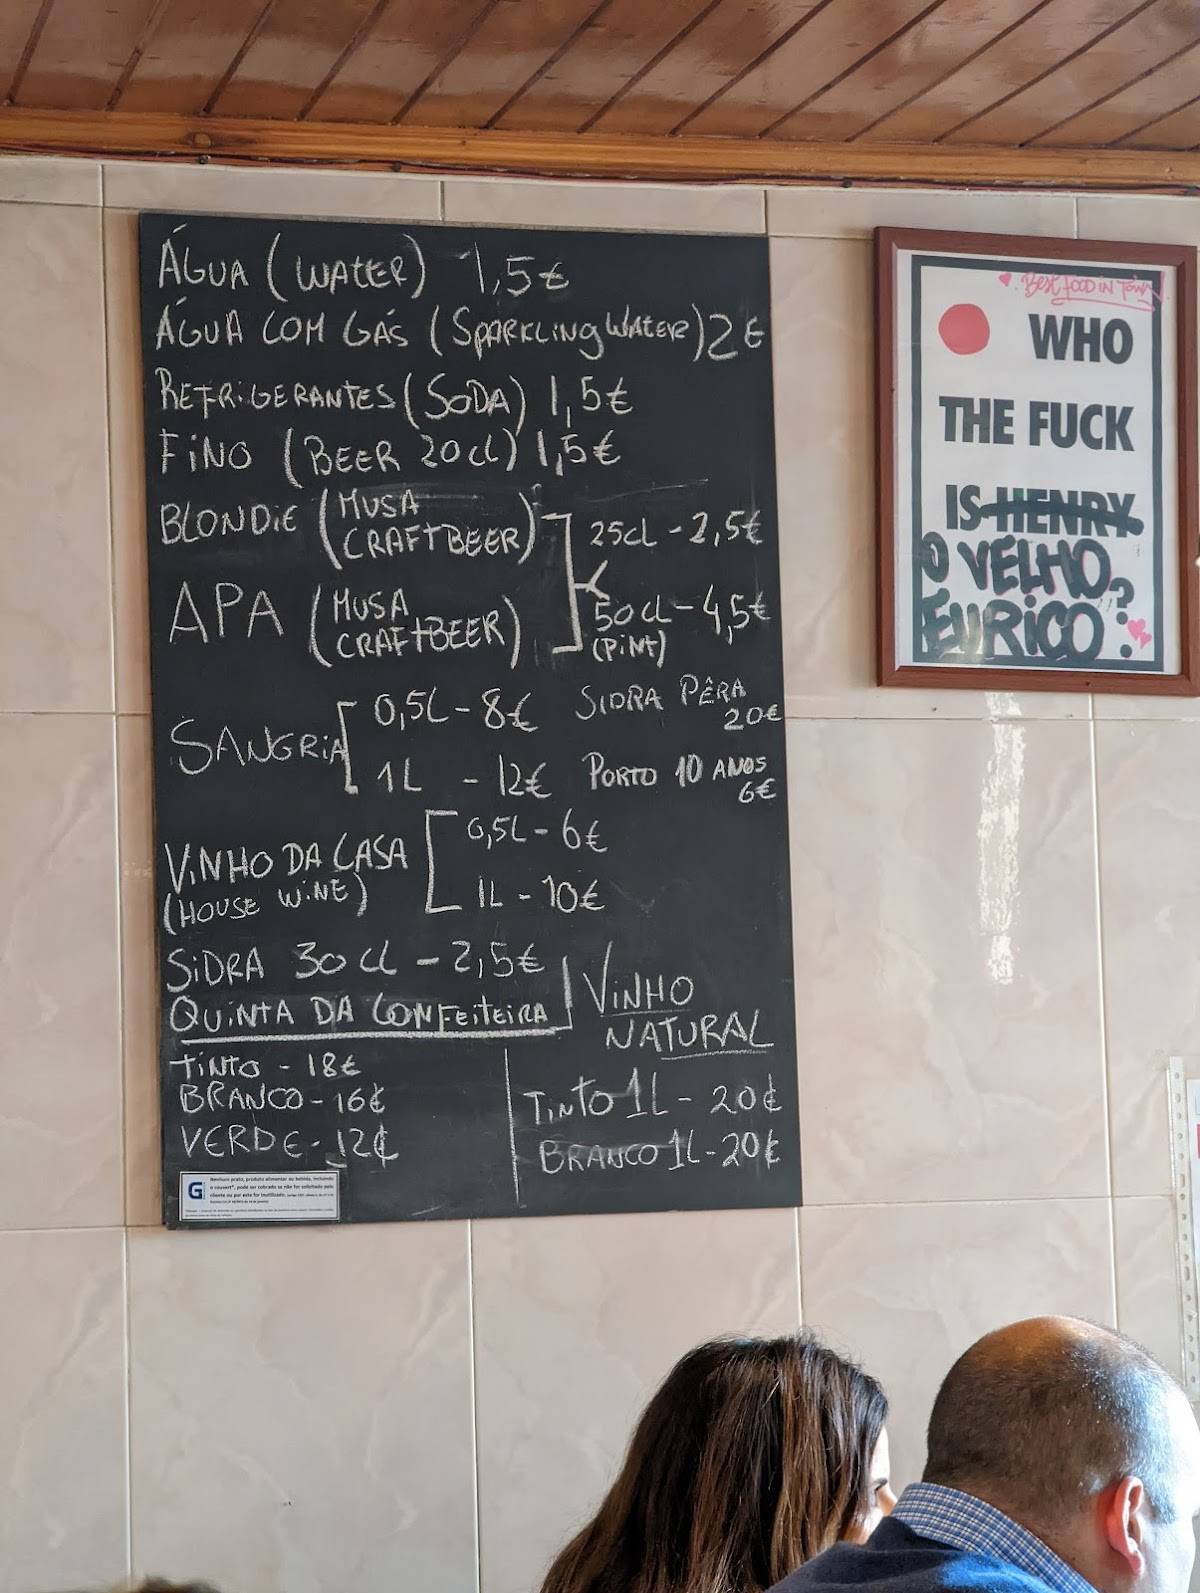 ÁGUA (WATER) 1,5€
ÁGUA COM GÁS (SPARKLING WATER) 2€
REFRIGERANTES (SODA) 1,5€
FINO (BEER 20cl) 1,5€
BLONDIE (MUSA
CRAFTBEER)
25cl - 2,5€
APA (MUSA
CRAFTBEER)
50cl - 4,5€
(PINT)
SANGRIA
0,5L - 8€
1L - 12€
SIDRA PÊRA
20€
PORTO 10 ANOS
6€
VINHO DA CASA
(HOUSE WINE)
0,5L - 6€
1L - 10€
SIDRA 30cl - 2,5€
QUINTA DA CONFEITEIRA
TINTO - 18€
BRANCO - 16€
VERDE - 12€
VINHO
NATURAL
TINTO 1L - 20€
BRANCO 1L - 20€
G
Nenhum prato, produto alimentar ou bebida, incluindo
o couvert*, pode ser cobrado se não for solicitado pelo
cliente ou por este for inutilizado.
BEST FOOD IN TOWN
WHO
THE FUCK
IS HENRY
O VELHO
EURICO?